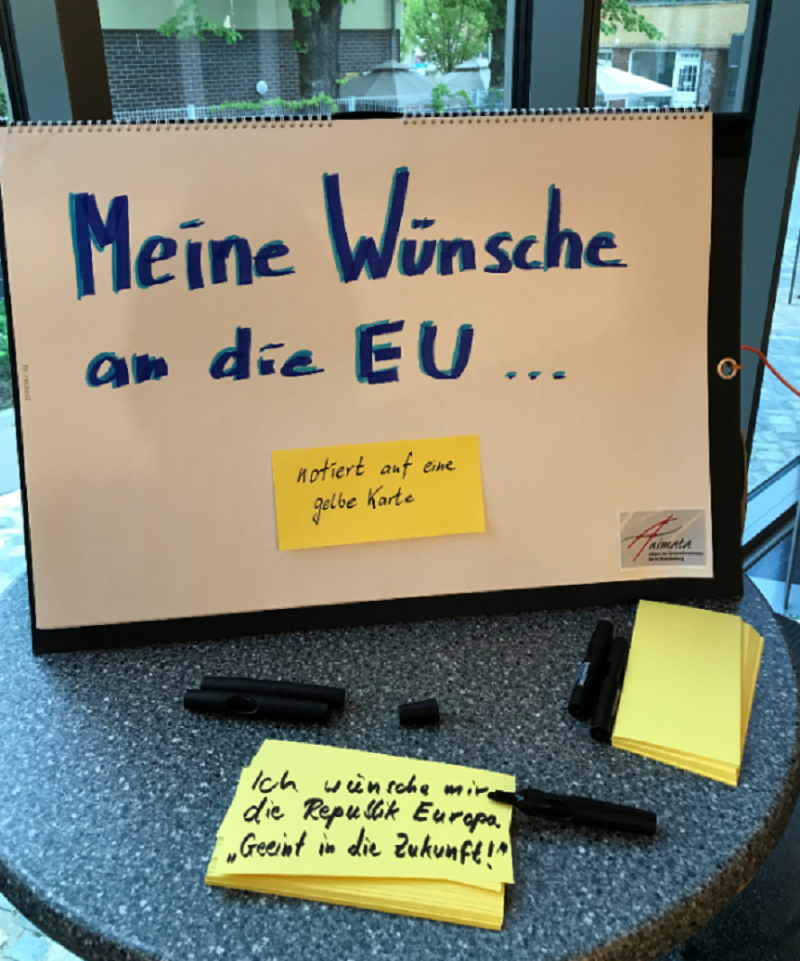 Meine Wünsche
an die EU ...
notiert auf eine
gelbe Karte
Aaimata
Ich wünsche mir
die Republik Europa
„Geeint in die Zukunft!"